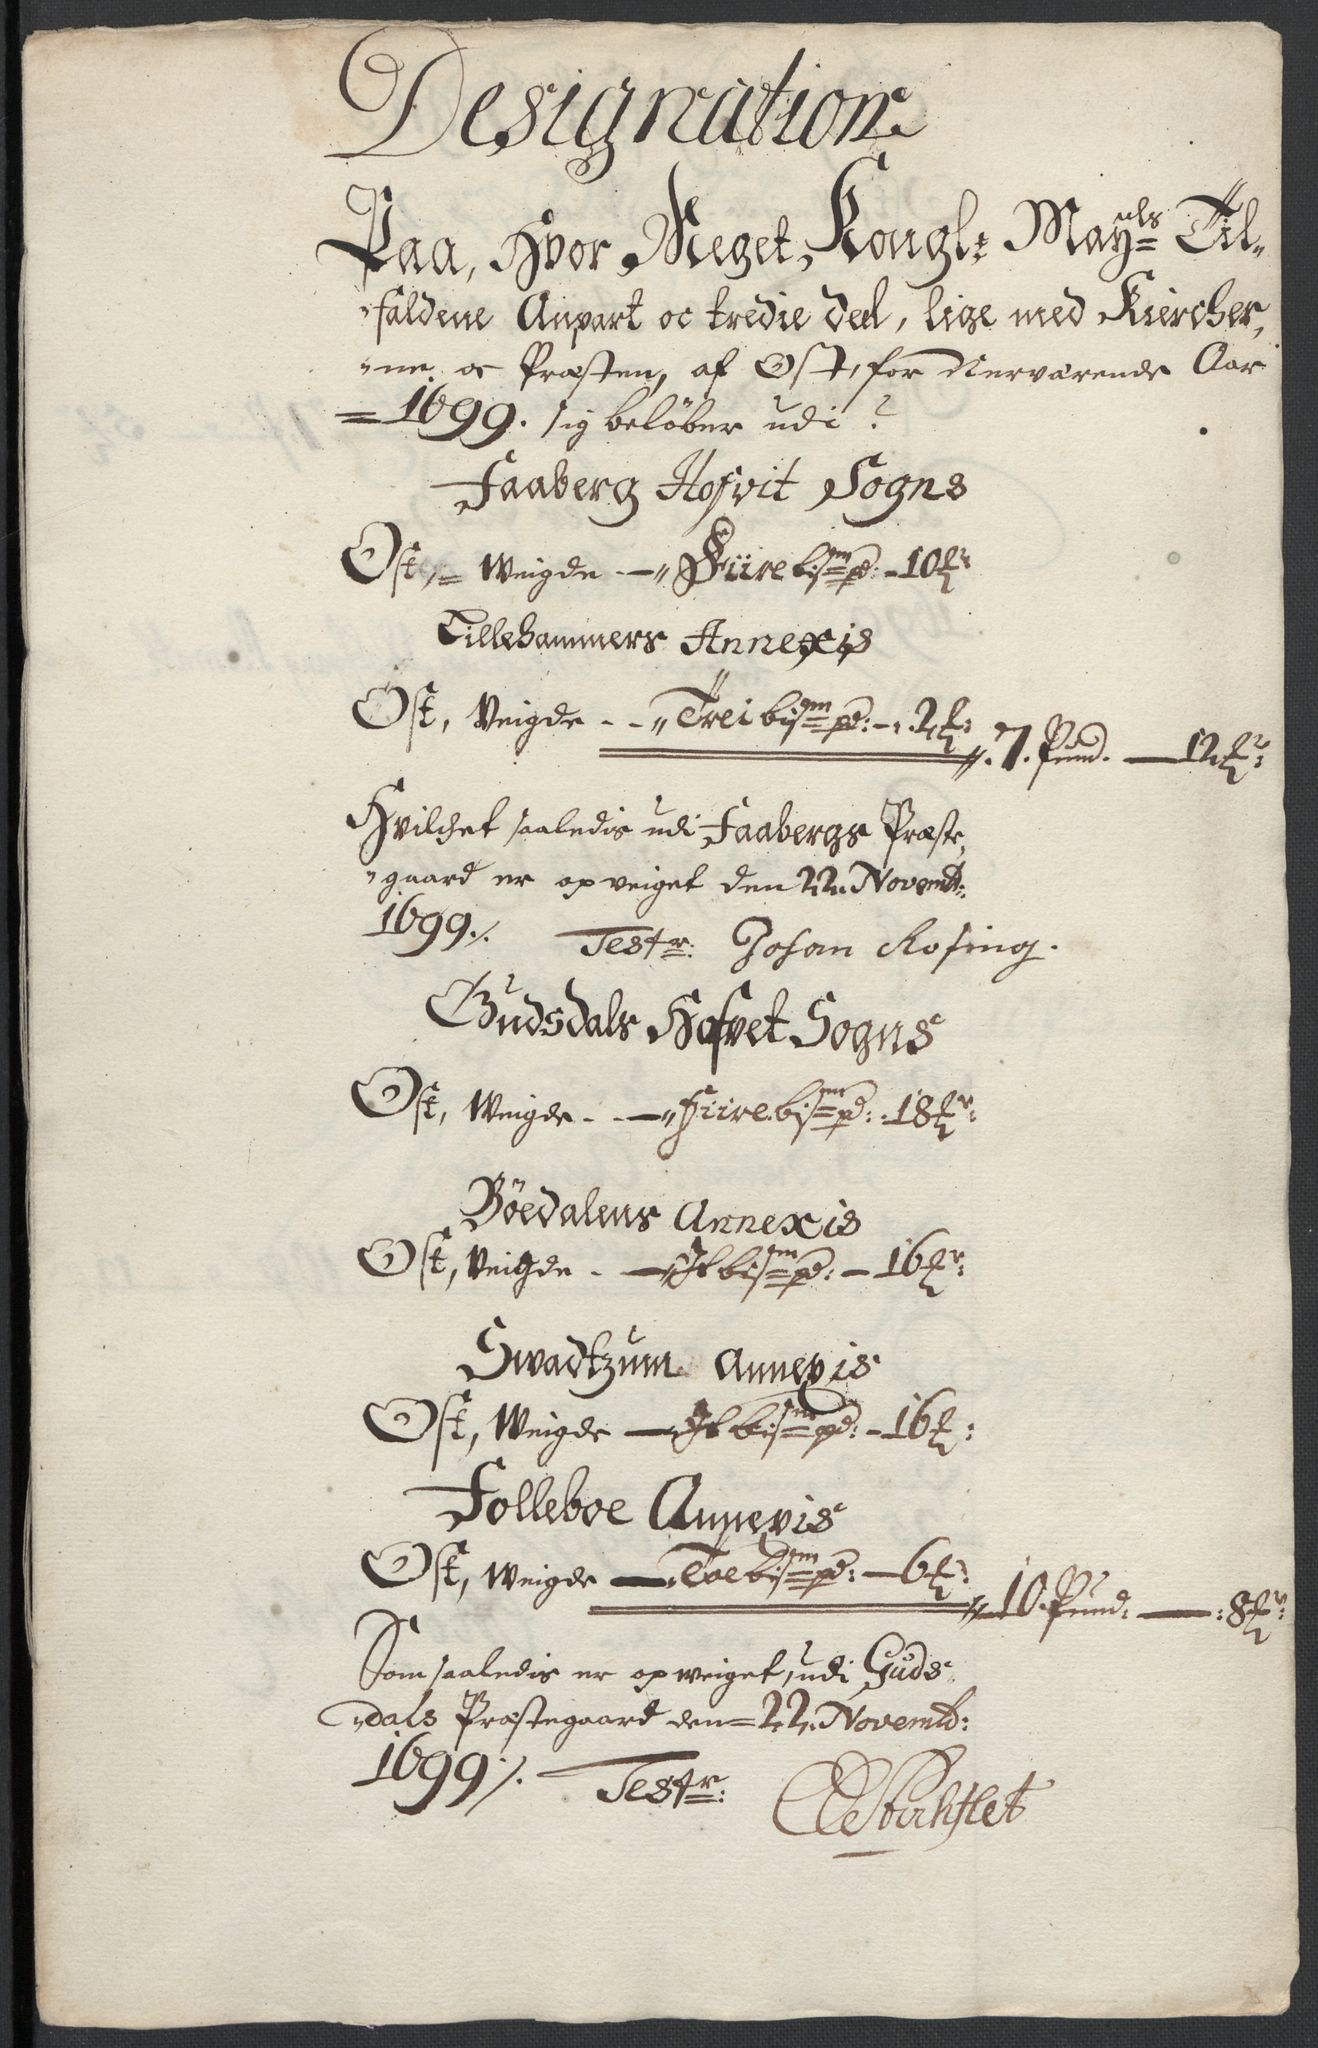 Designation
Paa, Hvor Meget, Kongl: May:ls Til-
faldene Anpart oc tredie deel, lige med Kiercher,
ne oc Præsten, af Ost, for Nerværende Aar
1699. sig beløber udi?
Faaberg Hofvit Sogns
Ost, Weigde - Fiire bis:m pd: - 10 ℔r
Lillehammers Annexis
Ost, Veigde - Trei bis:m pd: - 2 ℔:
7. Pund. - 12 ℔r:
Hvilchet saaledis udi Faabergs Præste,
gaard er opveiget den 22. Novemb:
1699 ./. Test:r: Johan Rosing.
Gudsdals Hofvet Sogns
Ost, Weigde - Fiire bis:m pd: - 18 ℔r:
Böedalens Annexis
Ost, Veigde - It bis:m pd: - 16 ℔r:
Swadtzum Annexis
Ost, Weigde - It bis:m pd: - 16 ℔:
Folleboe Annexis
Ost, Weigde - Toe bis:m pd: - 6 ℔r:
10. Pund: - 8 ℔r:
Som saaledis er opweiget, udi Guds-
dals Præstegaard den 22. Novemb:
1699 ./. Test:r: